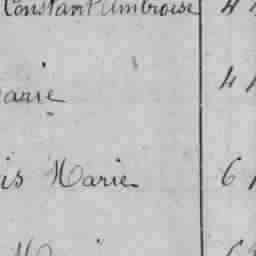 Constant Ambroise 4
arie 4
is Marie 6